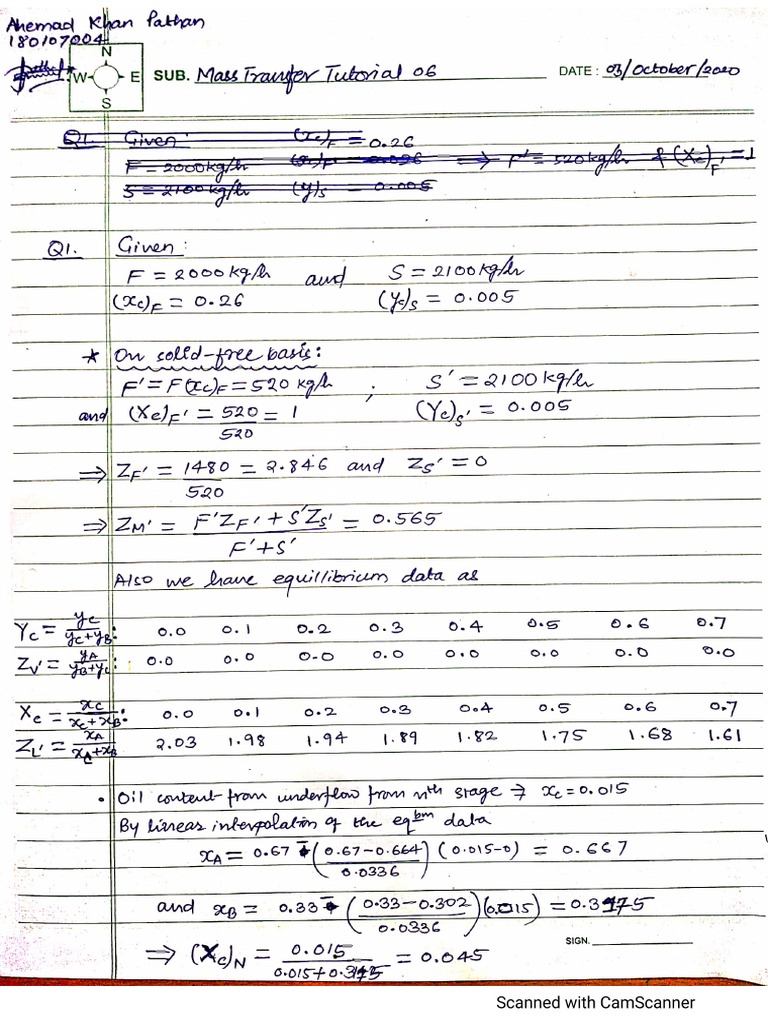 Ahemad Khan Pathan
180107004
N
W E SUB. Mass Transfer Tutorial 06 DATE : 03/October/2020
S
Q1. Given: (xc)F = 0.26
F = 2000kg/h (xc)F = 0.026 ⇒ F' = 520kg/h & (Xc)F' = 1
S = 2100kg/h (y)S = 0.005
Q1. Given:
F = 2000kg/h and S = 2100kg/h
(xc)F = 0.26 (yc)S = 0.005
* On solid-free basis:
F' = F(xc)F = 520 kg/h ; S' = 2100kg/h
and (Xc)F' = 520/520 = 1 (Yc)S' = 0.005
⇒ ZF' = 1480/520 = 2.846 and ZS' = 0
⇒ ZM' = F'ZF' + S'ZS' / F'+S' = 0.565
Also we have equillibrium data as
Yc = yc/yc+yB : 0.0 0.1 0.2 0.3 0.4 0.5 0.6 0.7
ZV' = yA/yB+yc : 0.0 0.0 0.0 0.0 0.0 0.0 0.0 0.0
Xc = xc/xc+xB : 0.0 0.1 0.2 0.3 0.4 0.5 0.6 0.7
ZL' = xA/xc+xB 2.03 1.98 1.94 1.89 1.82 1.75 1.68 1.61
• Oil content from underflow from nth stage → xc = 0.015
By linear interpolation of the eqbm data
xA = 0.67 - (0.67-0.664 / 0.0336) (0.015-0) = 0.667
and xB = 0.33 - (0.33-0.302 / 0.0336)(0.015) = 0.3175
⇒ (Xc)N = 0.015 / 0.015+0.3175 = 0.045
SIGN.
Scanned with CamScanner